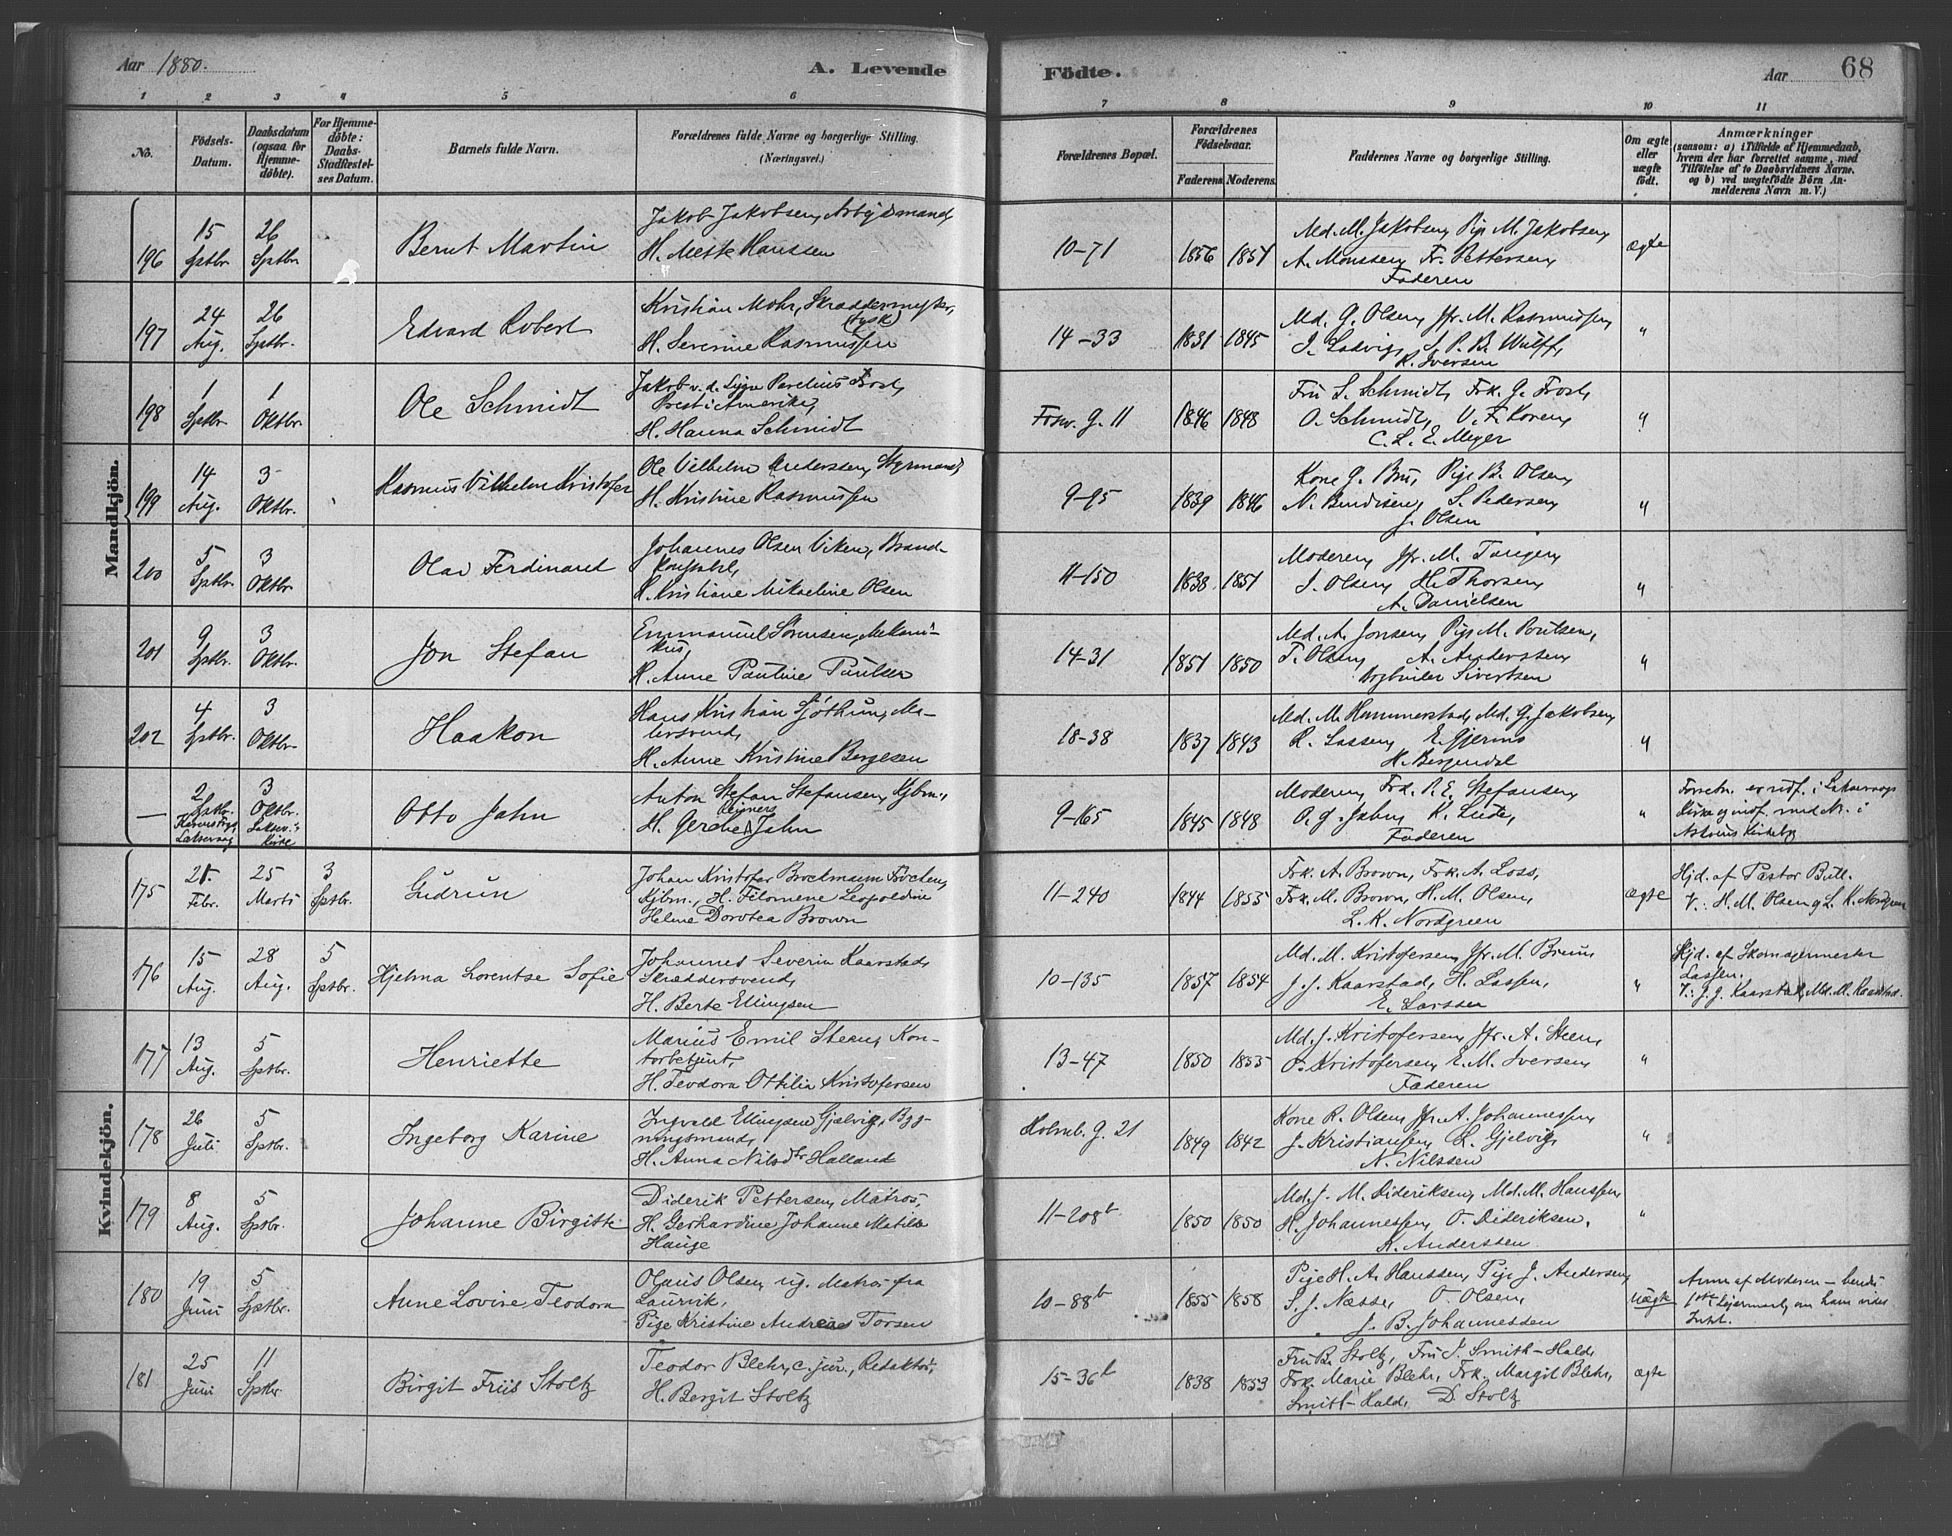 Aar 1880.
A. Levende
Födte.
Aar
68
1 2 3 4 5 6 7 8 9 10 11
No.
Födsels-
Datum.
Daabsdatum
(ogsaa for
Hjemme-
döbte).
For Hjemme-
döbte:
Daabs-
Stadfæstel-
ses Datum.
Barnets fulde Navn.
Forældrenes fulde Navne og borgerlige Stilling.
(Næringsvei.)
Forældrenes Bopæl.
Forældrenes
Födselsaar.
Faderens
Moderens.
Faddernes Navne og borgerlige Stilling.
Om ægte
eller
uægte
födt.
Anmærkninger
(saasom: a) i Tilfælde af Hjemmedaab,
hvem der har forrettet samme, med
Tilföielse af to Daabsvidners Navne.
og b) ved uægtefödte Börn An-
melderens Navn m. V.)
Mandkjön.
196
15
Sptbr.
26
Sptbr
Bernt Martin
Jakob Jakobsen, Arbejdsmand,
H. Mette Hanssen
10-71
1856
1851
Md. M. Jakobsen, Pige M. Jakobsen,
A. Monssen, Fr. Pettersen,
Faderen
ægte
197
24
Aug.
26
Sptbr.
Edvard Robert
Kristian Mohr, Skræddermester,
(tysk)
H. Severine Rasmussen
14-33
1831
1845
Md. G. Olsen, Jfr. M. Rasmussen,
J. Ludvig, S. P. B. Wulff,
R. Iversen
"
198
1
Sptbr.
1
Oktbr.
Ole Schmidt
Frost,
Prest i Amerika,
H. Hanna Schmidt
Fosw. g. 11
1846
1848
Fru S. Schmidt, Frk. G. Frost,
O. Schmidt, V. F. Koren,
C. L. E. Meyer
"
199
14
Aug.
3
Oktbr.
Rasmus Vilhelm Kristofer
Ole Vilhelm Anderssen, Styrmand,
H. Kristine Rasmussen
9-95
1839
1846
Kone G. Bru, Pige B. Olsen,
N. Bendixen, S. Pedersen,
J. Olsen
"
200
5
Sptbr.
3
Oktbr.
Olav Ferdinand
Johannes Olsen Viken, Brand-
konstabel,
H. Kristiane Mikaeline Olsen
11-150
1838
1851
Moderen, Jfr. M. Tangen,
J. Olsen, H. Thorsen,
A. Danielsen
"
201
9
Sptbr.
3
Oktbr.
Jon Stefan
Emmanuel Sørensen, Mekani-
kus,
H. Anne Pauline Paulsen
14-31
1851
1850
Md. A. Jonsen, Pige M. Poulsen,
T. Olsen, A. Anderssen,
Sivertsen
"
202
4
Sptbr.
3
Oktbr.
Haakon
Hans Kristian Sjøthun, Ma-
lersvend,
H. Anne Kristine Bergesen
18-38
1837
1843
Md. M. Hammerstad, Md. G. Jakobsen,
R. Lassen, E. Gjerms
H. Bergendal
"
—
2
Sptbr.
Laksevaag
3
Oktbr.
Laksev.'s
Kirke
Otto Jahn
Anton Stefan Stefansen, Kjbm.,
H. Gerche Jahn
9-165
1845
1848
Moderen, Frk. P. E. Stefansen,
O. G. Jahn, K. Lude,
Faderen
"
Kvindekjön.
175
21.
Febr.
25
Marts
3
Sptbr.
Gudrun
Johan Kristofer Brockmann Föchen,
Kjbm., H. Filomene Leopoldine
Helene Dorotea Brown
11-240
1844
1855
Frk. A. Brown, Frk. A. Loss,
Frk. M. Brown, H. M. Olsen,
L. K. Nordgreen
ægte
Hjd. af Pastor Bull.
V.: H. M. Olsen og L. K. Nordgreen
176
15
Aug.
28
Aug.
5
Sptbr.
Hjelma Lorentse Sofie
Johannes Severin Kaarstad,
Skræddersvend,
H. Berte Ellingsen
10-135
1857
1854
Md. M. Kristofersen, Jfr. M. Bruun
J. J. Kaarstad, H. Lassen,
E. Larssen
"
Hjd. af Skomagermester
Lassen.
V.: J. J. Kaarstad, Md. M. Kaarstad.
177
13
Aug.
5
Sptbr.
Henriette
Marius Emil Steen, Kon-
torbetjent,
H. Teodora Ottilia Kristofersen
13-47
1850
1855
Md. J. Kristofersen, Jfr. A. Steen,
O. Kristofersen, E. M. Iversen,
Faderen
"
178
26
Juli
5
Sptbr.
Ingeborg Karine
Ingvald Ellingsen Gjelvig, Byg-
ningsmand,
H. Anna Nilsdtr Halland
Holmb. g. 21
1849
1842
Kone R. Olsen, Jfr. A. Johannessen,
J. Kristiansen, L. Gjelvig,
N. Nilssen
"
179
8
Aug.
5
Sptbr.
Johanne Birgitte
Diderik Pettersen, Matros,
H. Gerhardine Johanne Matilde
Hauge
11-208b
1850
1850
Md. J. M. Dideriksen, Md. M. Hanssen,
H. Johannessen, O. Dideriksen.
K. Anderssen
"
180
19
Juni
5
Sptbr.
Anne Lovise Teodora
Olaus Olsen, ug. Matros fra
Laurvik,
Pige Kristine Andrea Torsen
10-88b
1855
1858
Pige H. A. Hanssen, Pige J. Andersen,
S. J. Næsse, O. Olsen,
J. B. Johannesden
uægte
Anm. af Moderen — hendes
1ste Lejermaal, om ham vides
Intet.
181
25
Juni
11
Sptbr
Birgit Friis Stoltz
Teodor Blehr, c. jur., Redaktør,
H. Bergit Stoltz
15-36b
1838
1853
Fru B. Stoltz, Fru J. Smitt-Hald,
Frk. Marie Blehr, Frk. Margit Blehr,
Smitt-Hald, D. Stoltz
ægte